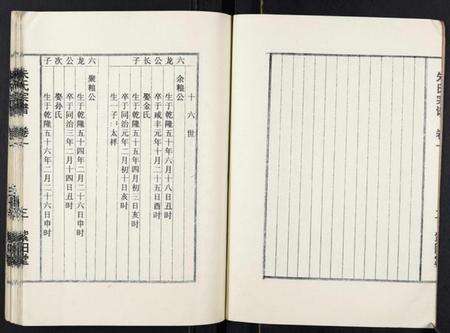 朱氏宗谱 卷一
十六世
六龙公长子
余粮公
生于乾隆五十年六月十八日丑时
卒于咸丰元年十月二十五日酉时
娶金氏
生于乾隆五十五年四月初三日辰时
卒于同治元年二月初十日亥时
生一子：太祥
六龙公次子
聚粮公
生于乾隆五十四年二月二十六日申时
卒于同治三年二月十四日戌时
娶孙氏
生于乾隆五十六年二月二十六日申时
朱氏宗谱 卷一 三 紫阳堂